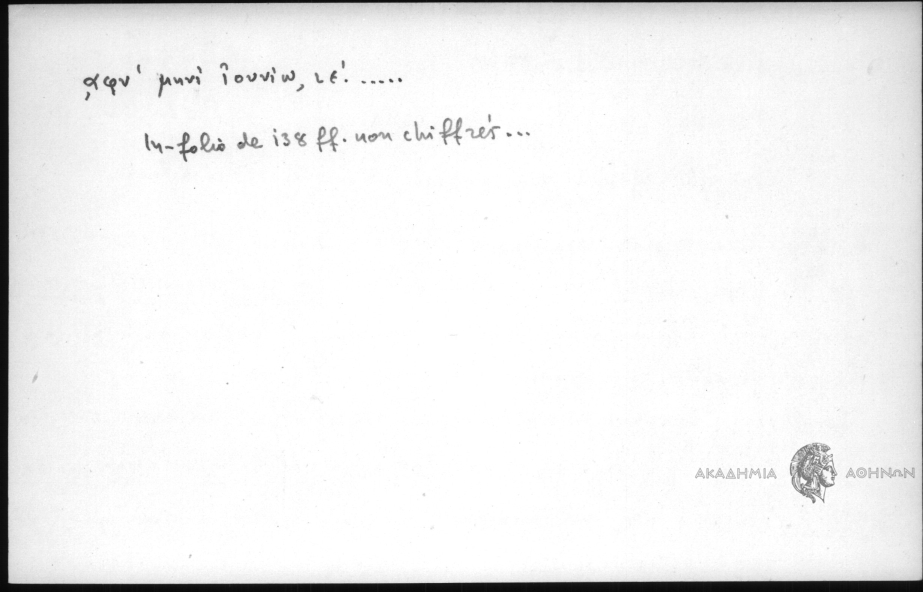 ͵αφν´ μηνὶ ἰουνίω, ιε´. .....
In-folio de 138 ff. non chiffrés...
ΑΚΑΔΗΜΙΑ ΑΘΗΝΩΝ